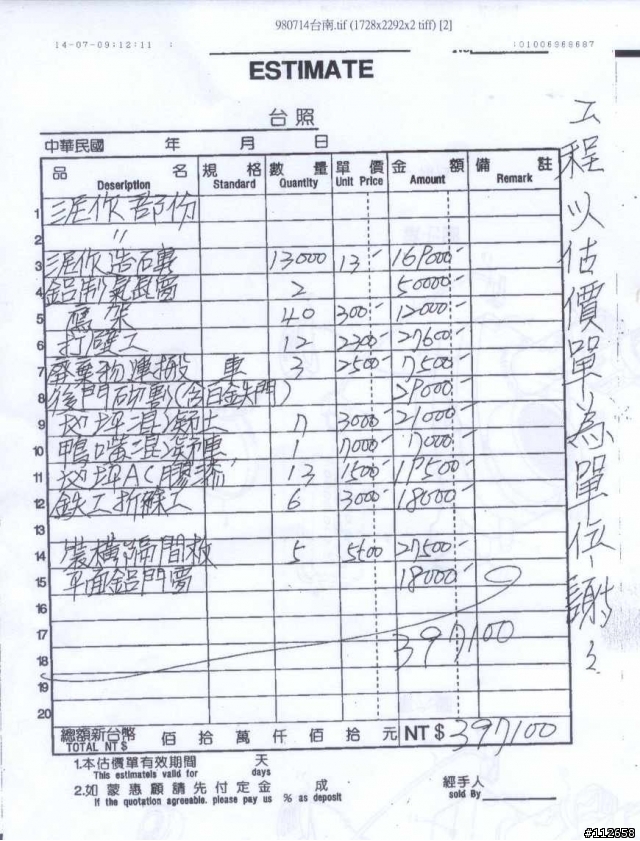 980714台南.tif (1728x2292x2 tiff) [2]
14-07-09:12:11 : :01006988687
ESTIMATE
台照
中華民國 年 月 日
品名 規格 數量 單價 金額 備註
Deseription Standard Quantity Unit Price Amount Remark
1 泥作部份
2 "
3 泥作造磚 13000 13 169000
4 鋁制氣密窗 2 50000
5 鷹架 40 300 12000
6 打硬工 12 2300 27600
7 廢棄物運搬 車 3 2500 7500
8 後門砌磚(含白鉄門) 29000
9 坪混凝土 7 3000 21000
10 鴨嘴混凝車 1 7000 7000
11 坪AC膠漆 13 1500 19500
12 鉄工拆 工 6 3000 18000
13
14 裝橫隔間板 5 5500 27500
15 平面鋁門窗 18000
16
17 397100
18
19
20
總額新台幣 佰 拾 萬 仟 佰 拾 元 NT$ 397100
TOTAL NT$
1.本估價單有效期間 天
This estimateis valid for days
2.如蒙惠顧請先付定金 成
If the quotation agreeable. please pay us % as deposit
經手人
sold By
工程以估價單為單位謝謝
#112658